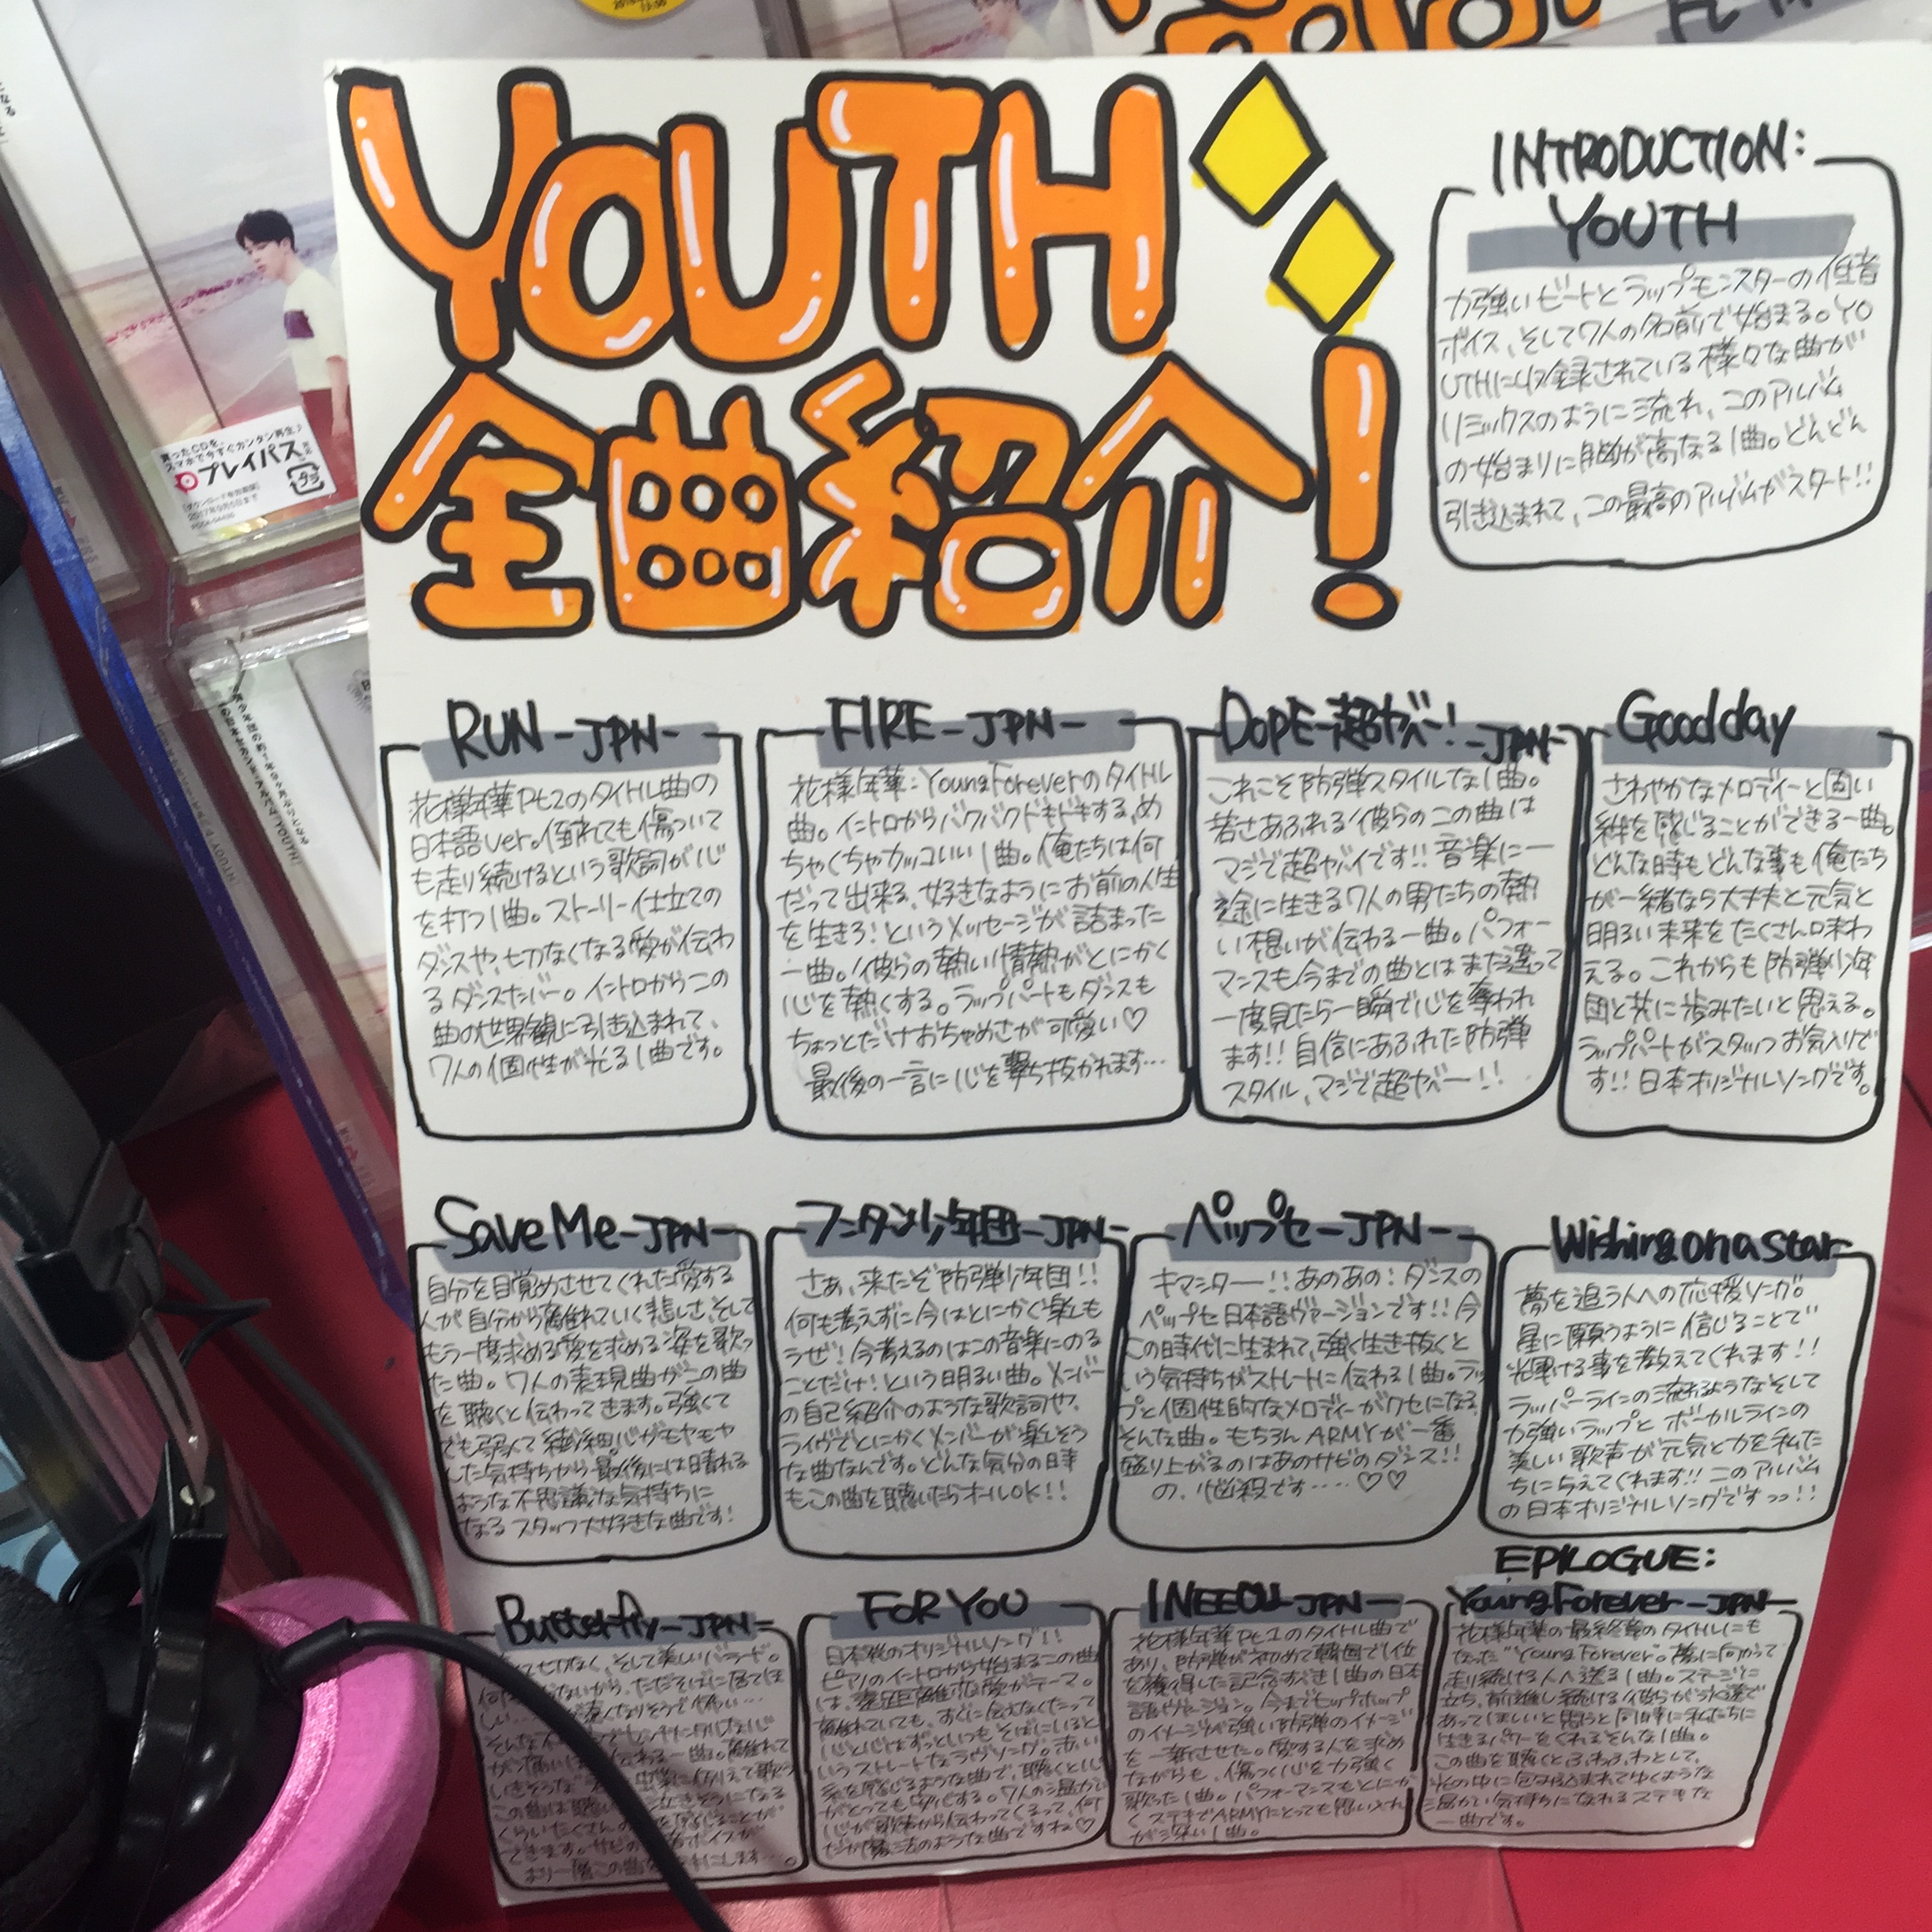 YOUTH
全曲紹介!
INTRODUCTION:
YOUTH
力強いビートとラップモンスターの低音
ボイス、そして7人の名前で始まる。YO
UTHに収録されている様々な曲が
リミックスのように流れ、このアルバム
の始まりに胸が高なる1曲。どんどん
引き込まれて、この最高のアルバムがスタート!!
RUN-JPN-
花様年華Pt2のタイトル曲の
日本語ver。倒れても傷ついて
も走り続けるという歌詞が心
を打つ1曲。ストーリー仕立ての
ダンスや、切なくなる愛が伝わ
るダンスナンバー。イントロからこの
曲の世界観に引き込まれて、
7人の個性が光る1曲です。
FIRE-JPN-
花様年華:Young Foreverのタイトル
曲。イントロからバクバクドキドキする、め
ちゃくちゃカッコいい1曲。俺たちは何
だって出来る、好きなようにお前の人生
を生きろ!というメッセージが詰まった
一曲。彼らの熱い情熱がとにかく
心を熱くする。ラップパートもダンスも
ちょっとだけおちゃめさが可愛い♡
最後の一言に心を撃ち抜かれます…
DOPE-超ヤバー!-JPN-
これこそ防弾スタイルな1曲。
若さあふれる彼らのこの曲は
マジで超ヤバイです!!音楽に一
途に生きる7人の男たちの熱
い想いが伝わる一曲。パフォー
マンスも今までの曲とはまた違って
一度見たら一瞬で心を奪われ
ます!!自信にあふれた防弾
スタイル、マジで超ヤバー!!
Good day
さわやかなメロディーと固い
絆を感じることができる一曲。
どんな時もどんな事も俺たち
が一緒なら大丈夫と元気と
明るい未来をたくさん味わ
える。これからも防弾少年
団と共に歩みたいと思える。
ラップパートがスタッフお気入りで
す!!日本オリジナルソングです。
Save Me-JPN-
自分を目覚めさせてくれた愛する
人が自分から離れていく悲しさ、そして
もう一度求める愛を求める姿を歌っ
た曲。7人の表現曲がこの曲
を聴くと伝わってきます。強くて
でも弱くて繊細、心がモヤモヤ
した気持ちから最後には晴れる
ような不思議な気持ちに
なるスタッフ大好きな曲です!
フンタン少年団-JPN-
さあ、来たぞ防弾少年団!!
何も考えずに今はとにかく楽しも
うぜ!今考えるのはこの音楽にのる
ことだけ!という明るい曲。メンバー
の自己紹介のような歌詞や、
ライヴでとにかくメンバーが楽しそう
な曲なんです。どんな気分の時
もこの曲を聴いたらオールOK!!
ペップセ-JPN-
キマシター!!あのあの!ダンスの
ペップセ日本語ヴァージョンです!!今
この時代に生まれて、強く生き抜くと
いう気持ちがストレートに伝わる1曲。ラッ
プと個性的なメロディーがクセになる
そんな曲。もちろんARMYが一番
盛り上がるのはあのサビのダンス!!
の、悩殺です....♡♡
Wishing on a star
夢を追う人への応援ソング。
星に願うように信じることで
光輝ける事を教えてくれます!!
ラッパーラインの流れるようなそして
力強いラップとボーカルラインの
美しい歌声が元気と力を私た
ちに与えてくれます!!このアルバム
の日本オリジナルソングですっっ!!
Butterfly-JPN-
切なく、そして美しいバラード。
FOR YOU
日本発のオリジナルソング!!
ピアノのイントロから始まるこの曲
は、遠距離恋愛がテーマ。
離れていても、すぐに会えなくたって
心と心はずっといつもそばにいると
いうストレートなラヴソング。赤い
糸を感じるような曲で、聴くと心
がとっても
I NEED U-JPN-
花様年華Pt1のタイトル曲で
あり、防弾が初めて韓国で1位
を獲得した記念すべき1曲の日本
語ヴァージョン。今までヒップホップ
のイメージが強い防弾のイメージ
を一新させた。愛する人を求め
ながらも、傷つく心を力強く
歌った1曲。パフォーマンスもとにか
くステキでARMYにとっても思い入れ
が深い1曲。
EPILOGUE:
Young Forever-JPN-
花様年華の最終章のタイトルにも
なった"Young Forever"。夢に向かって
走り続ける人へ送る1曲。ステージに
立ち、前進し続ける彼らが永遠で
あってほしいと思うと同時に私たちに
生きるパワーをくれるそんな1曲。
この曲を聴くとふわふわとして、
光の中に包み込まれてゆくような
温かい気持ちになれるステキな
一曲です。
買ったCDを、
スマホで今すぐカンタン再生♪
プレイパス